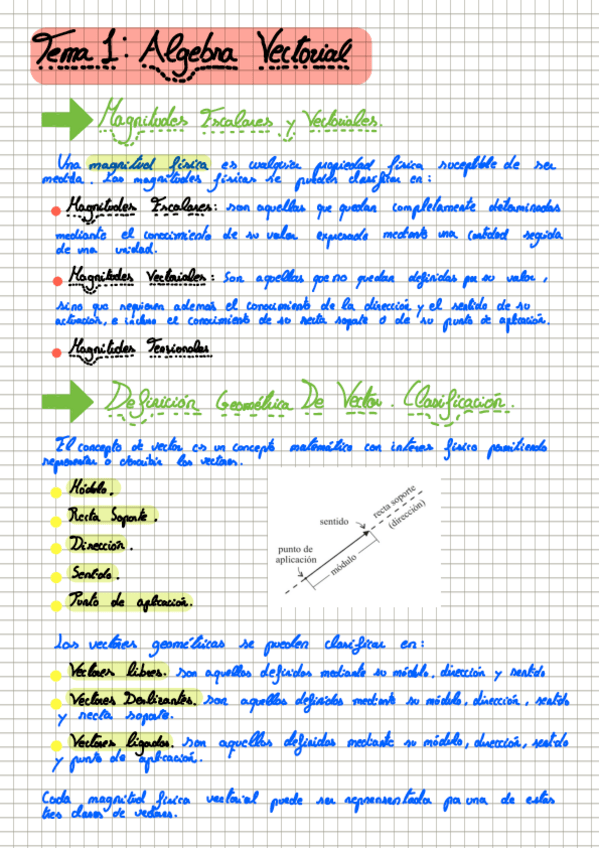 Tema 1: Algebra Vectorial
Magnitudes Escalares y Vectoriales.
Una magnitud física es cualquier propiedad física suceptible de ser
medida. Las magnitudes físicas se pueden clasificar en:
Magnitudes Escalares: son aquellas que quedan completamente determinadas
mediante el conocimiento de su valor expresado mediante una cantidad seguida
de una unidad.
Magnitudes Vectoriales: Son aquellas que no quedan definidas por su valor,
sino que requieren además el conocimiento de la dirección y el sentido de su
actuación, e incluso el conocimiento de su recta soporte o de su punto de aplicación.
Magnitudes Tensionales
Definición Geométrica De Vector. Clasificación.
El concepto de vector es un concepto matemático con interés físico permitiendo
representar o describir los vectores.
Módulo.
Recta Soporte.
Dirección.
Sentido.
Punto de aplicación.
recta soporte
(dirección)
sentido
punto de
aplicación
módulo
Los vectores geométricos se pueden clasificar en:
Vectores libres. son aquellos definidos mediante su módulo, dirección y sentido
Vectores Deslizantes. son aquellos definidos mediante su módulo, dirección, sentido
y recta soporte.
Vectores ligados. son aquellos definidos mediante su módulo, dirección, sentido
y punto de aplicación.
Cada magnitud física vectorial puede ser reprensentada por una de estas
tres clases de vectores.